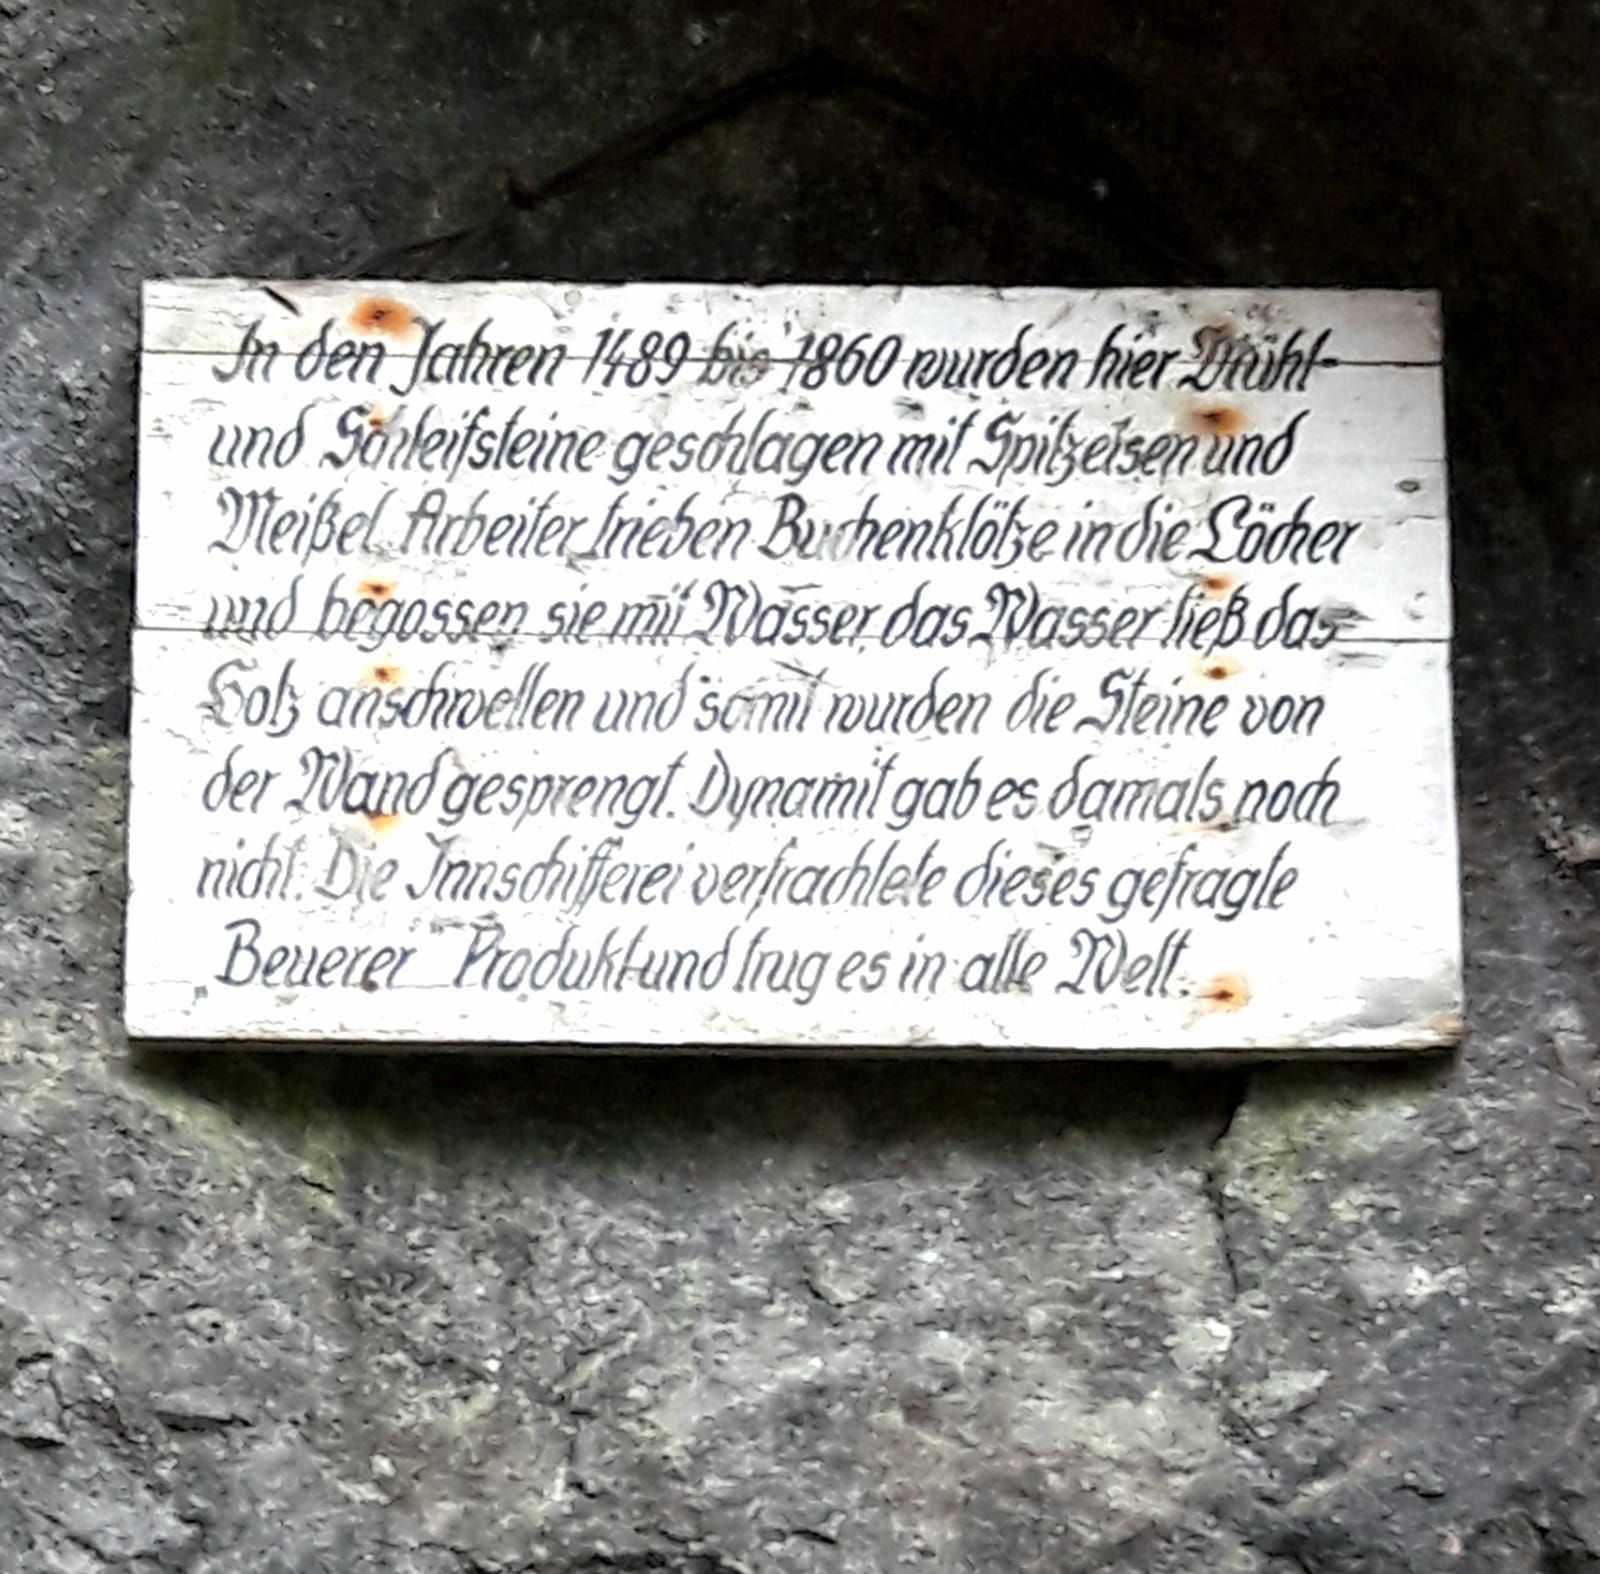 In den Jahren 1489 bis 1860 wurden hier Mühl-
und Schleifsteine geschlagen mit Spitzeisen und
Meißel. Arbeiter trieben Buchenklötze in die Löcher
und begossen sie mit Wasser, das Wasser ließ das
Holz anschwellen und somit wurden die Steine von
der Wand gesprengt. Dynamit gab es damals noch
nicht. Die Innschifferei verfrachtete dieses gefragte
„Beuerer" Produkt und trug es in alle Welt.